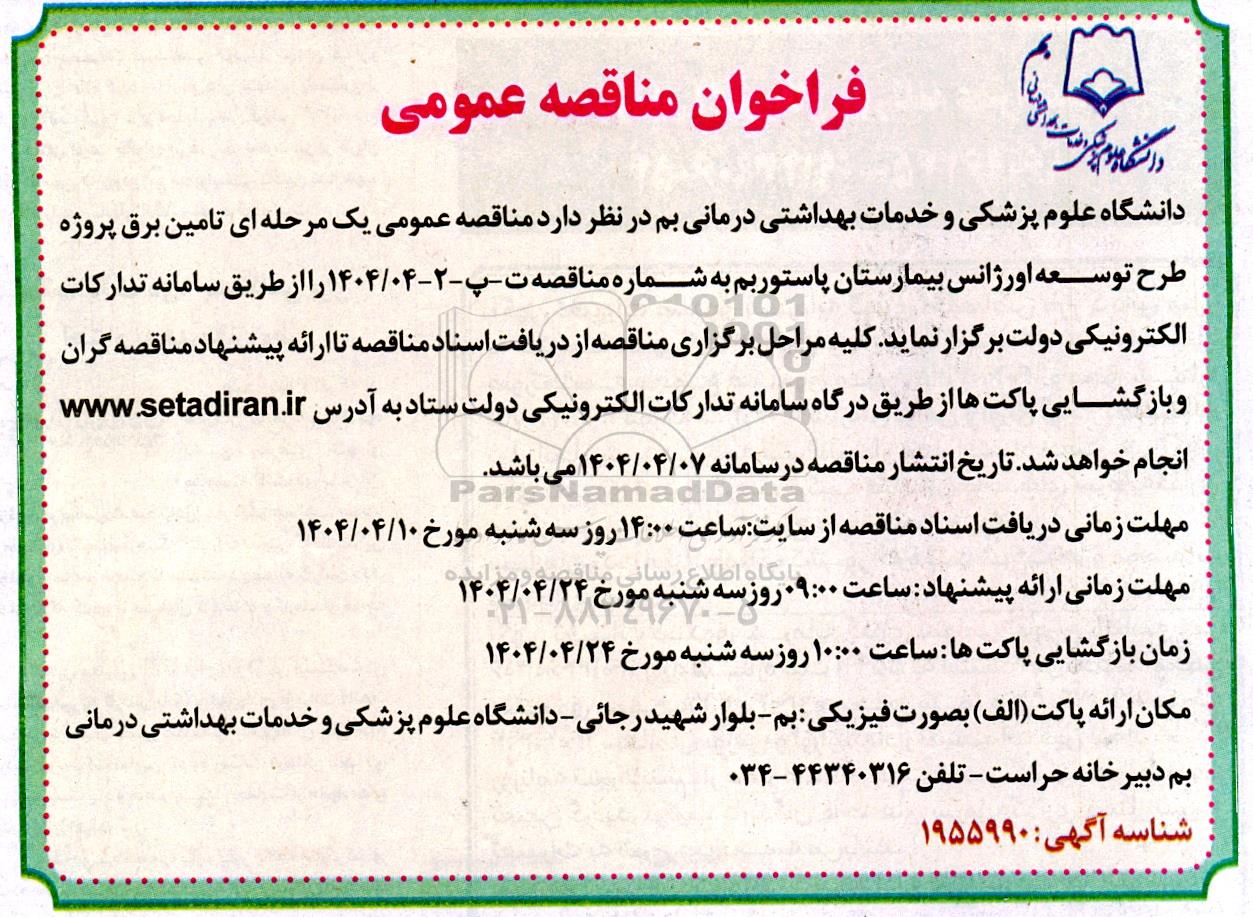 بم
دانشگاه علوم پزشکی و خدمات بهداشتی درمانی
فراخوان مناقصه عمومی
دانشگاه علوم پزشکی و خدمات بهداشتی درمانی بم در نظر دارد مناقصه عمومی یک مرحله ای تامین برق پروژه
طرح توسعه اورژانس بیمارستان پاستوربم به شماره مناقصه ت-پ-۲-۱۴۰۴/۰۴ رااز طریق سامانه تدارکات
الکترونیکی دولت برگزار نماید. کلیه مراحل برگزاری مناقصه از دریافت اسناد مناقصه تا ارائه پیشنهاد مناقصه گران
و بازگشایی پاکت ها از طریق درگاه سامانه تدارکات الکترونیکی دولت ستاد به آدرس www.setadiran.ir
انجام خواهد شد. تاریخ انتشار مناقصه در سامانه ۱۴۰۴/۰۴/۰۷ می باشد.
مهلت زمانی دریافت اسناد مناقصه از سایت: ساعت ۱۴:۰۰ روز سه شنبه مورخ ۱۴۰۴/۰۴/۱۰
مهلت زمانی ارائه پیشنهاد: ساعت ۰۹:۰۰ روزسه شنبه مورخ ۱۴۰۴/۰۴/۲۴
زمان بازگشایی پاکت ها: ساعت ۱۰:۰۰ روزسه شنبه مورخ ۱۴۰۴/۰۴/۲۴
مکان ارائه پاکت (الف) بصورت فیزیکی: بم- بلوار شهید رجائی- دانشگاه علوم پزشکی و خدمات بهداشتی درمانی
بم دبیرخانه حراست- تلفن ۴۴۳۴۰۳۱۶ -۰۳۴
شناسه آگهی: ۱۹۵۵۹۹۰
ParsNamadData
پایگاه اطلاع رسانی مناقصه و مزایده
۰۲۱-۸۸۳۴۹۶۷۰-۵